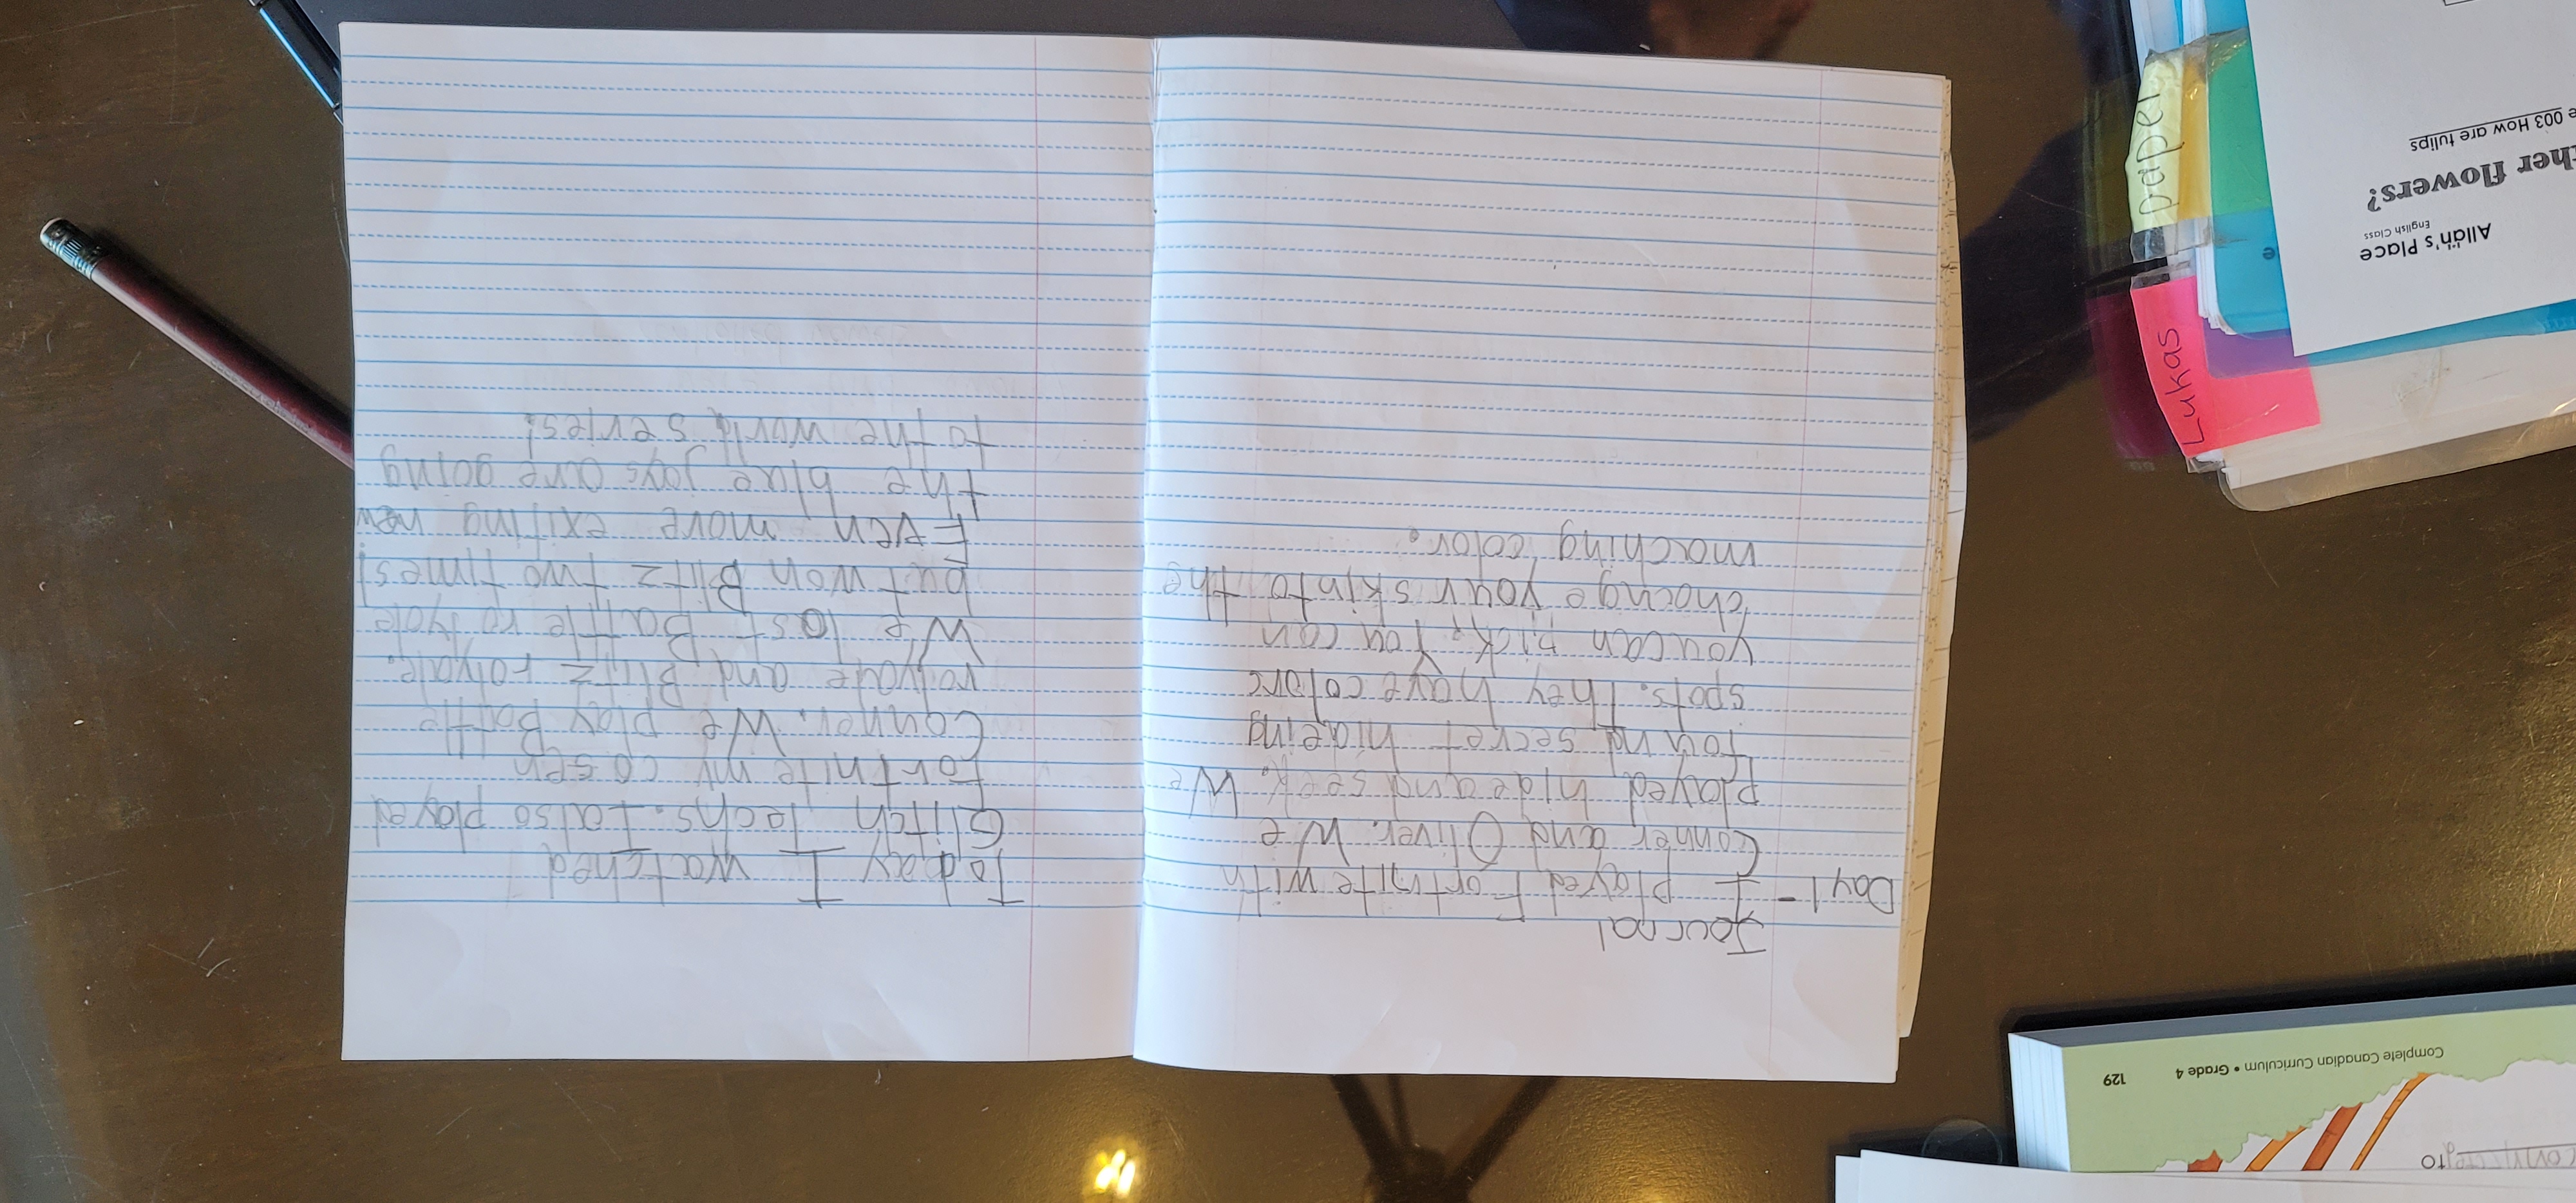 Journal
Day 1- I played Fortnite with
Conner and Oliver. We
played hide and seek. We
found secret hideing
spots. They have colors
you can pick. You can
chacnge your skin to the
maching color.
Today I watched
Glitch Techs. I also played
fortnite my cosen
Conner. We play Battle
rolyale and Blitz rolyale.
We lost Battle ro lyale
but won Blitz two times!
Even more exiting new
the blue Jays are going
to the world series!
paper
Lukas
Allan's Place
English Class
her flowers?
e 003 How are tulips
Complete Canadian Curriculum • Grade 4
129
to